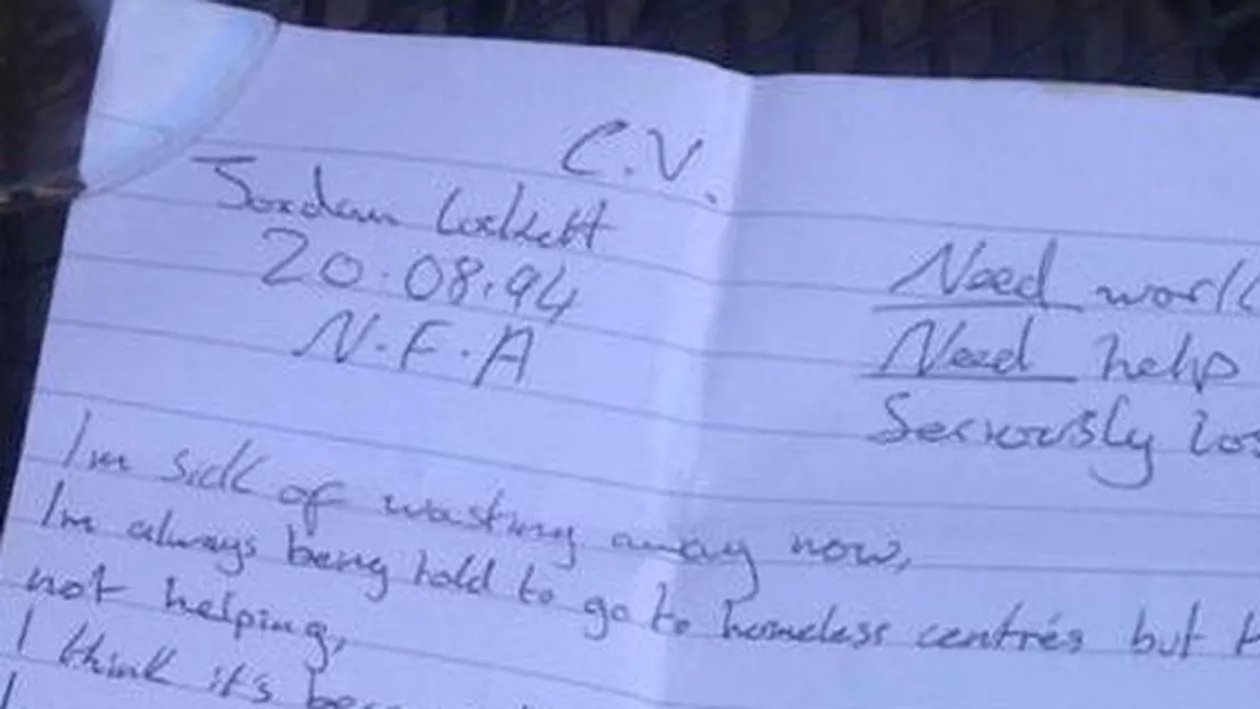 C.V.
Jordan Lockett
20.08.94
N.F.A
Need work
Need help
Seriously
I'm sick of wasting away now,
I'm always being told to go to homeless centres but
not helping,
I think it's